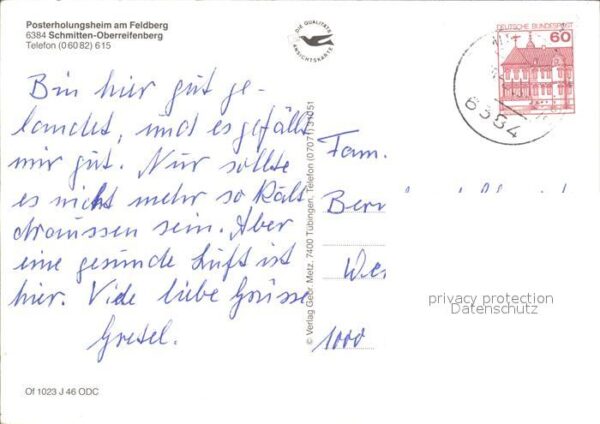 Posterholungsheim am Feldberg
6384 Schmitten-Oberreifenberg
Telefon (0 60 82) 6 15
DIE QUALITÄTS
ANSICHTSKARTE
DEUTSCHE BUNDESPOST
60
6384
Bin hier gut ge-
landet, und es gefällt
mir gut. Nur sollte
es nicht mehr so kalt
draussen sein. Aber
eine gesunde Luft ist
hier. Viele liebe Grüsse
Gretel.
© Verlag Gebr. Metz, 7400 Tübingen, Telefon (07071) 31051
Fam.
Ber
We
1000
privacy protection
Datenschutz
Of 1023 J 46 ODC